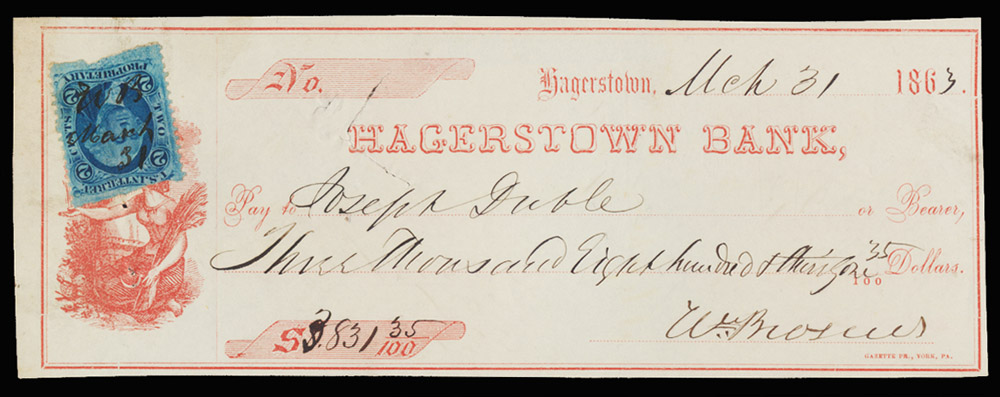 No.
Hagerstown, Mch 31 1863.
HAGERSTOWN BANK,
Pay to Joseph Duble or Bearer,
Three Thousand Eight hundred & thirty one 35/100 Dollars.
$3.831 35/100
Wm
GAZETTE PR., YORK, PA.
U.S. INTER REV
2 TWO CTS. 2
2 2
PROPRIETARY
March
31